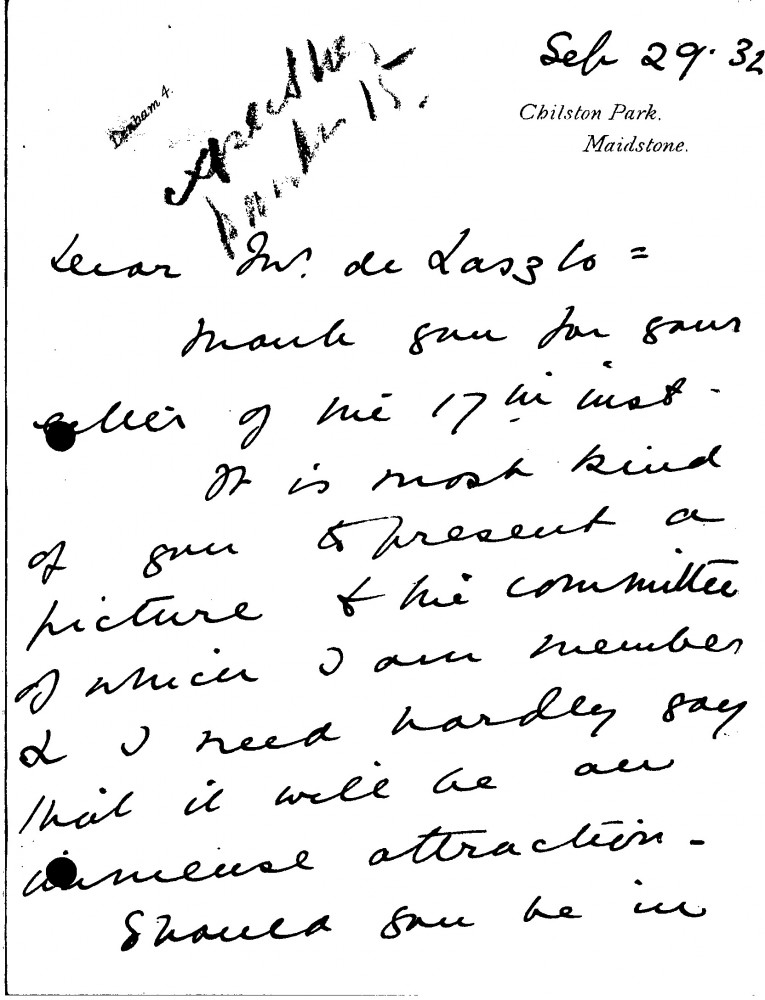 Sep 29. 32
Denham 4.
Chilston Park.
Maidstone.
Dear Mr. de Laszlo =
Thank you for your
letter of the 17th inst -
It is most kind
of you to present a
picture to the committee
of which I am member
& I need hardly say
that it will be an
immense attraction -
Should you be in